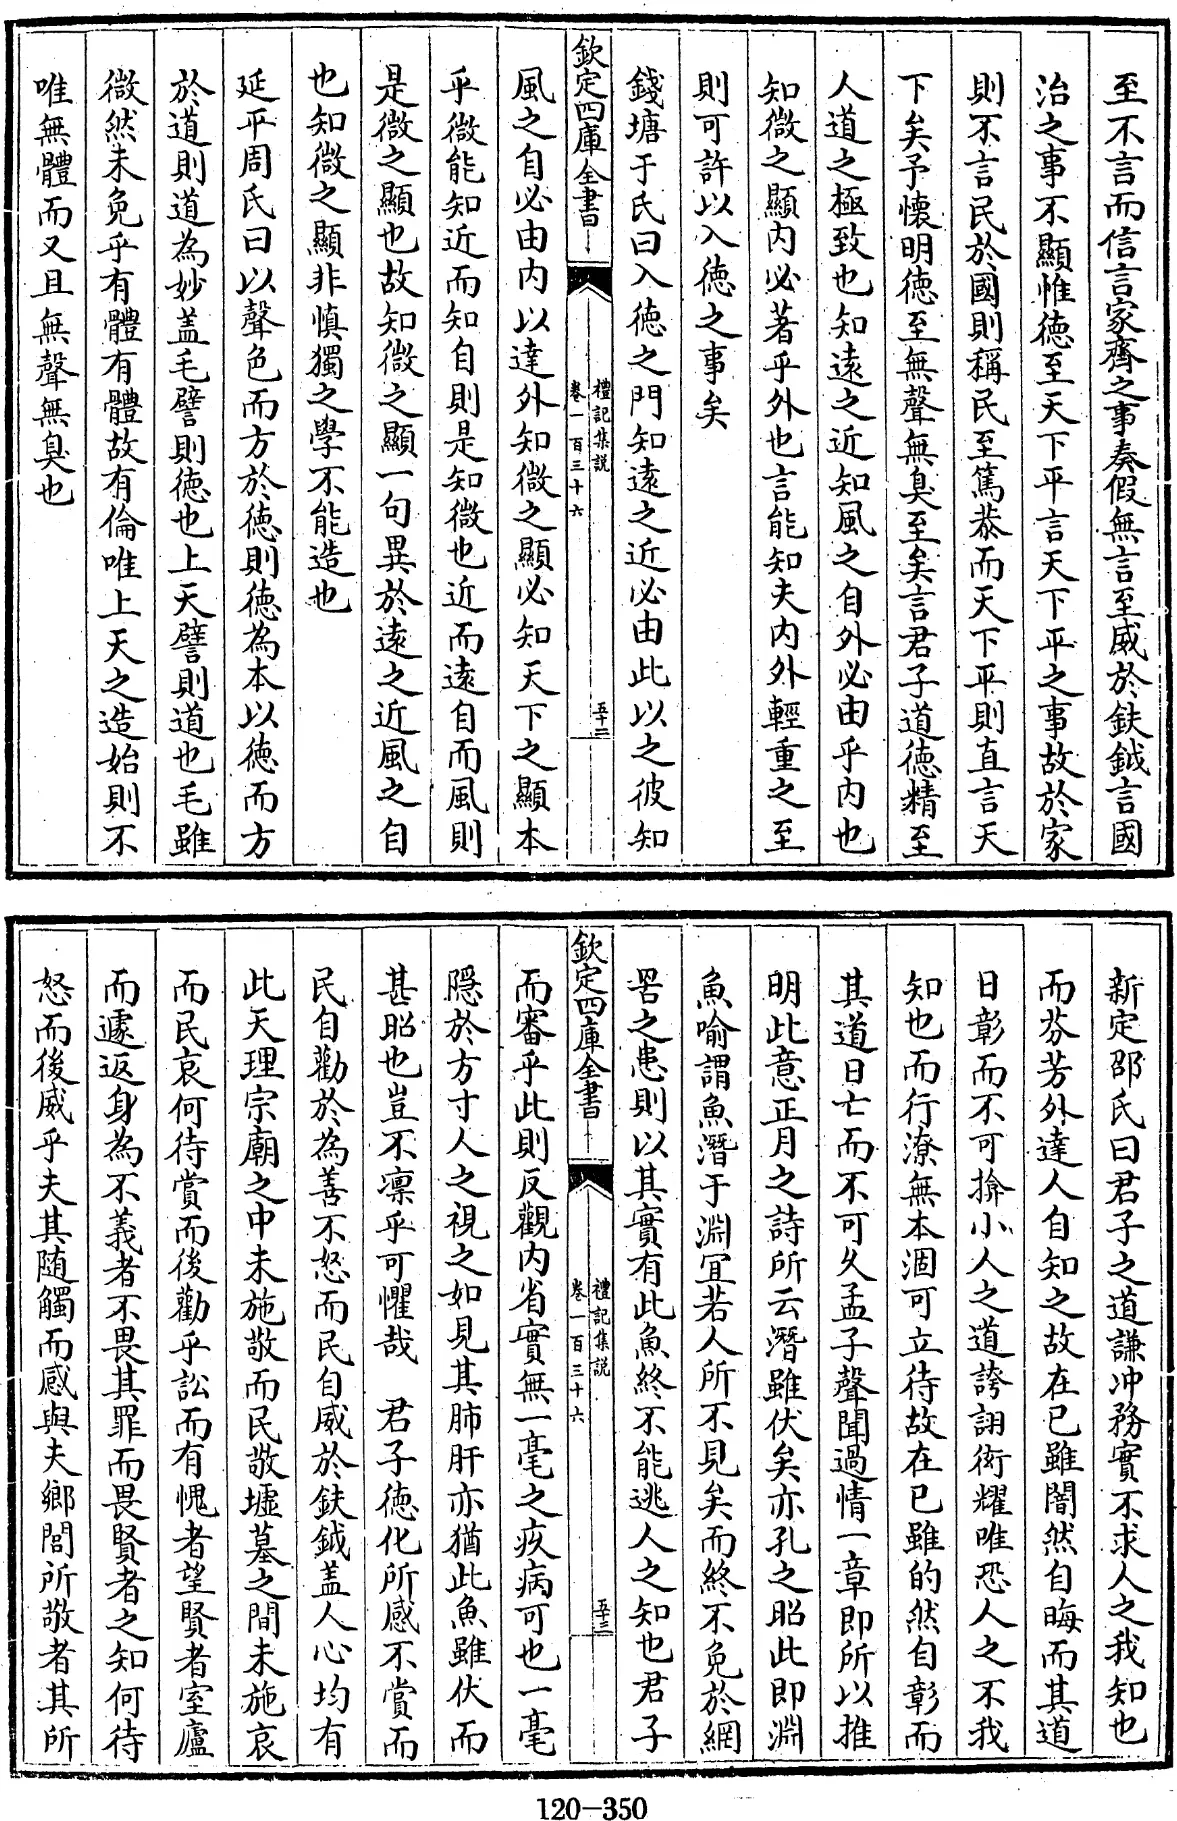 至不言而信言家齊之事奏假無言至威於鈇鉞言國
治之事不顯惟德至天下平言天下平之事故於家
則不言民於國則稱民至篤恭而天下平則直言天
下矣予懷明德至無聲無臭至矣言君子道德精至
人道之極致也知遠之近知風之自外必由乎內也
知微之顯內必著乎外也言能知夫內外輕重之至
則可許以入德之事矣
錢塘于氏曰入德之門知遠之近必由此以之彼知
欽定四庫全書
禮記集說
卷一百三十六
五十二
風之自必由內以達外知微之顯必知天下之顯本
乎微能知近而知自則是知微也近而遠自而風則
是微之顯也故知微之顯一句異於遠之近風之自
也知微之顯非慎獨之學不能造也
延平周氏曰以聲色而方於德則德為本以德而方
於道則道為妙蓋毛譬則德也上天譬則道也毛雖
微然未免乎有體有體故有倫唯上天之造始則不
唯無體而又且無聲無臭也
新定邵氏曰君子之道謙冲務實不求人之我知也
而芬芳外達人自知之故在已雖闇然自晦而其道
日彰而不可揜小人之道誇詡衒耀唯恐人之不我
知也而行潦無本涸可立待故在已雖的然自彰而
其道日亡而不可久孟子聲聞過情一章即所以推
明此意正月之詩所云潛雖伏矣亦孔之昭此即淵
魚喻謂魚潛于淵宜若人所不見矣而終不免於網
罟之患則以其實有此魚終不能逃人之知也君子
欽定四庫全書
禮記集說
卷一百三十六
五十三
而審乎此則反觀內省實無一毫之疾病可也一毫
隱於方寸人之視之如見其肺肝亦猶此魚雖伏而
甚昭也豈不凛乎可懼哉　君子德化所感不賞而
民自勸於為善不怒而民自威於鈇鉞蓋人心均有
此天理宗廟之中未施敬而民敬墟墓之間未施哀
而民哀何待賞而後勸乎訟而有愧者望賢者室廬
而遽返身為不義者不畏其罪而畏賢者之知何待
怒而後威乎夫其随觸而感與夫鄉閭所敬者其所
120-350